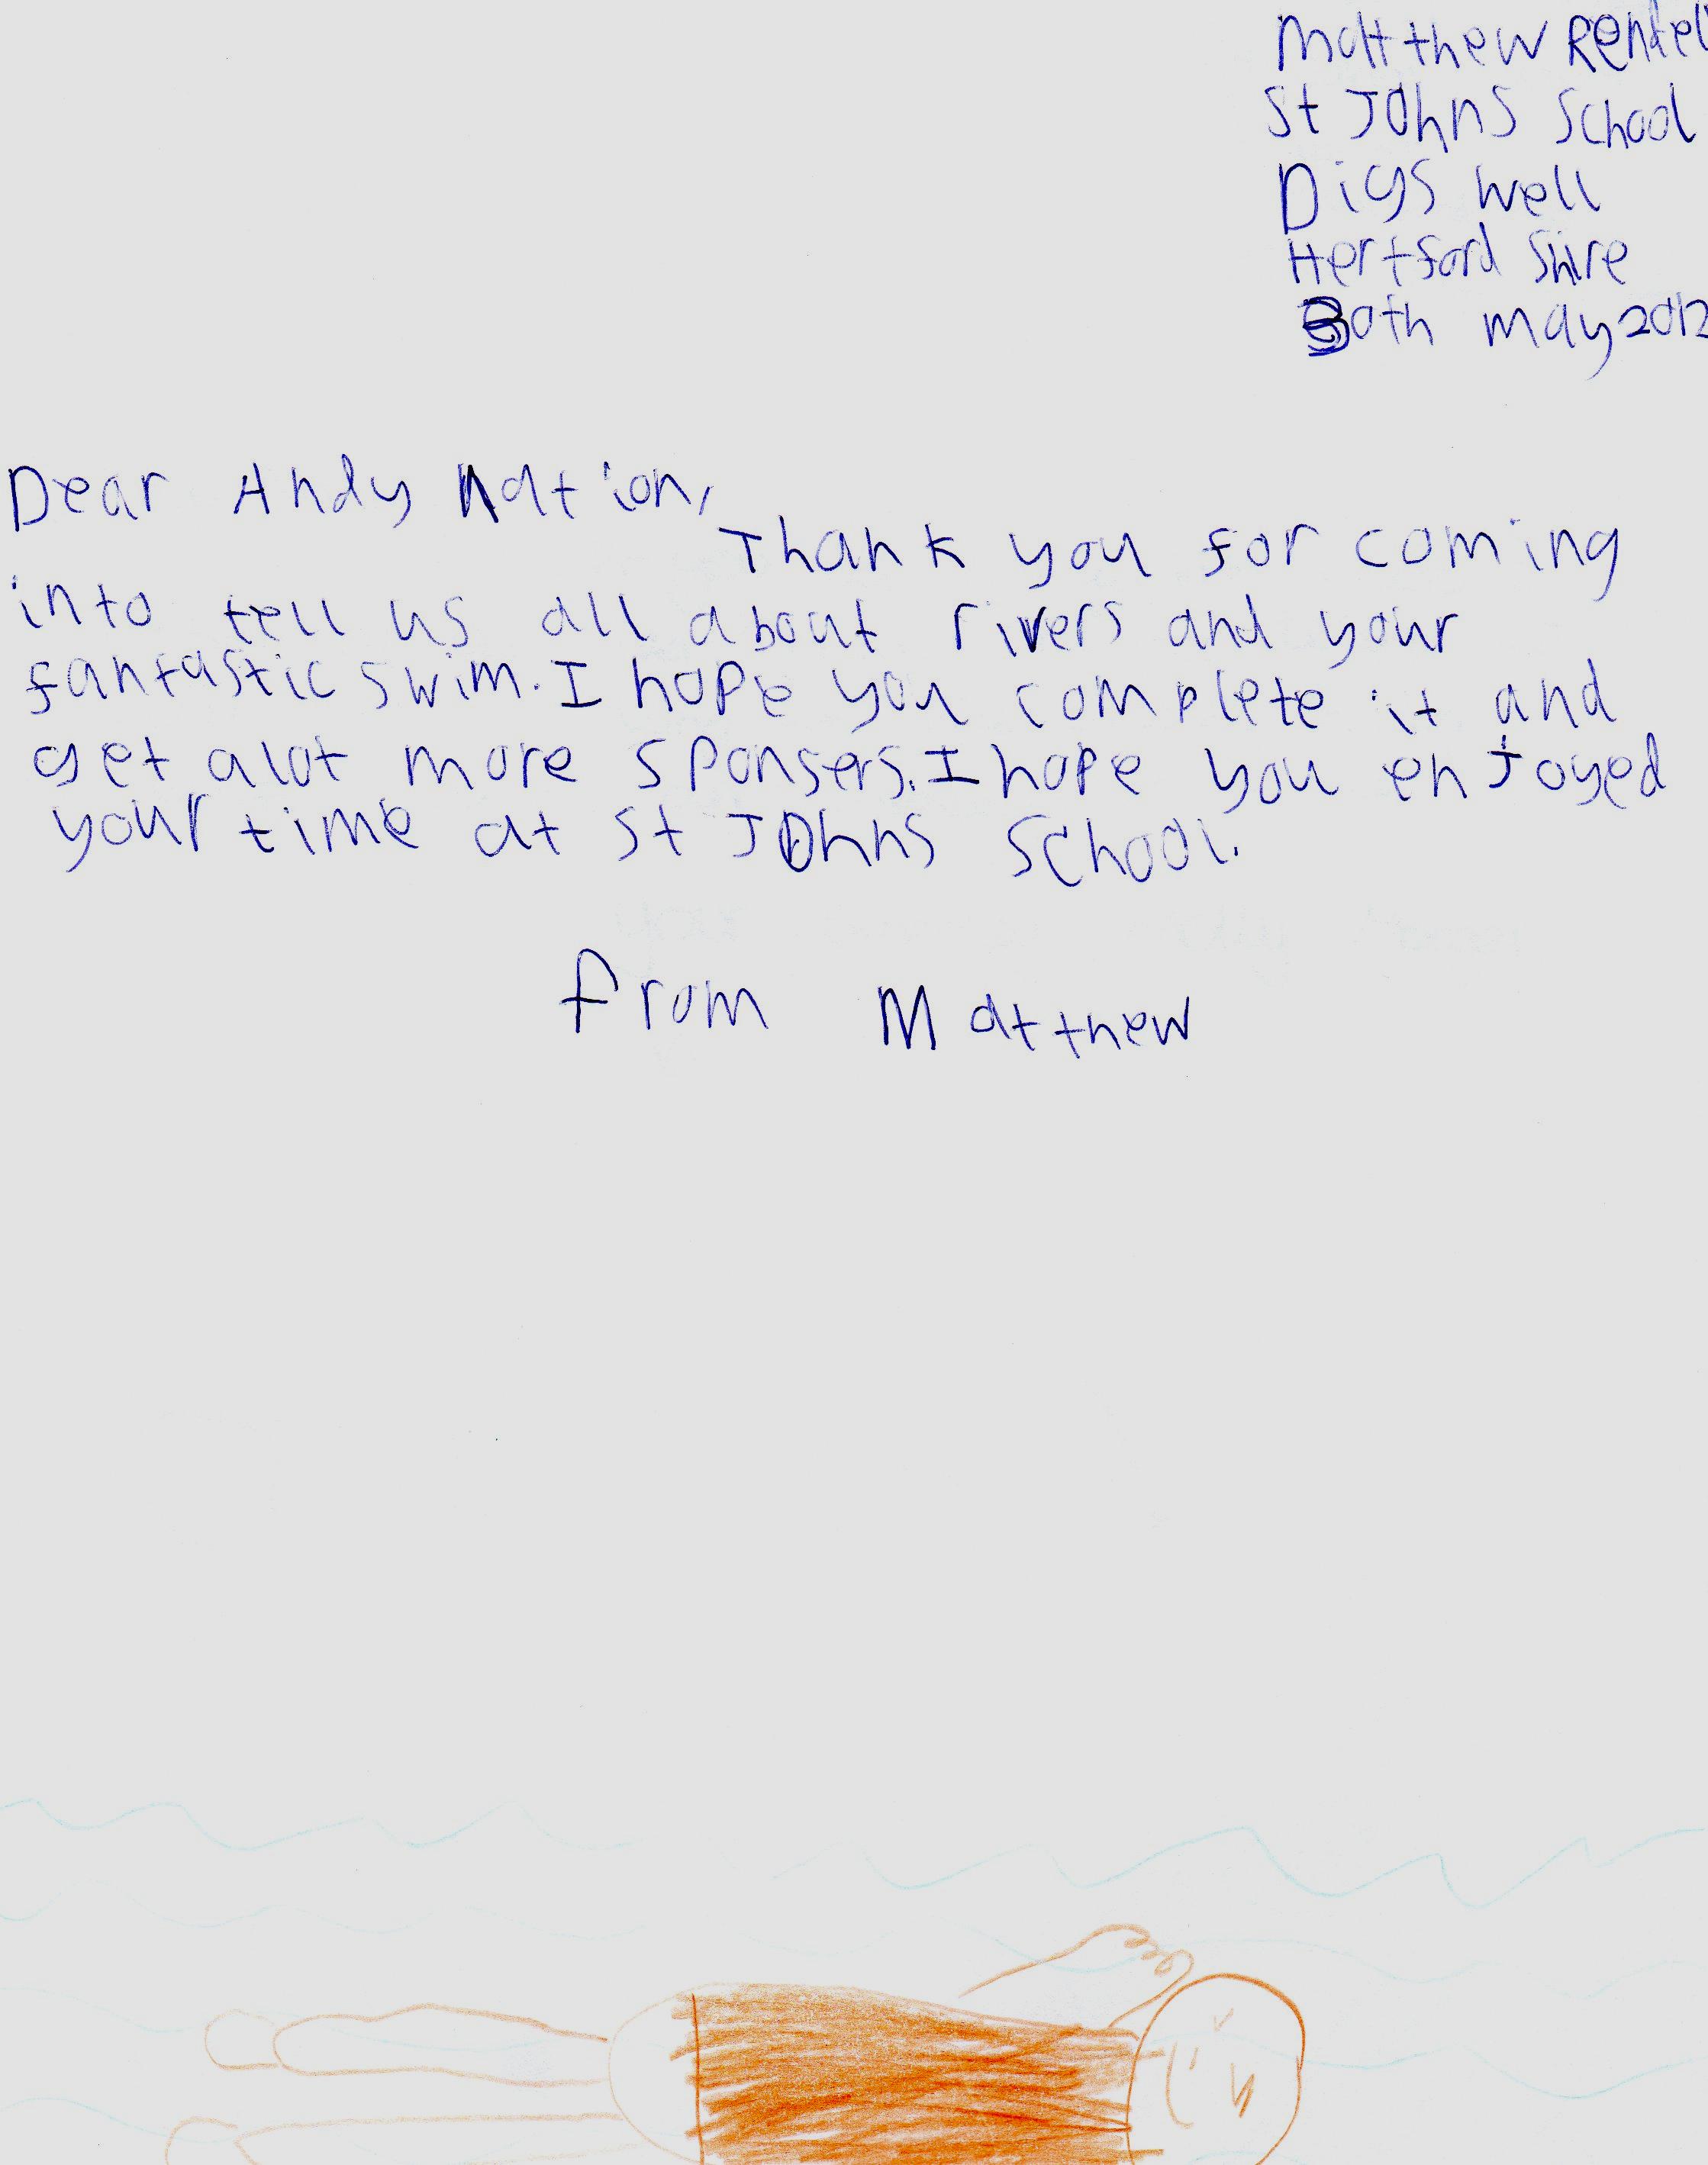 Matthew Rendell
St Johns School
Digs well
Hertford Shire
30th may 2012
Dear Andy Nation,
Thank you for coming
into tell us all about rivers and your
fantastic swim. I hope you complete it and
get alot more sponsers. I hope you enJoyed
your time at St Johns School.
from Matthew